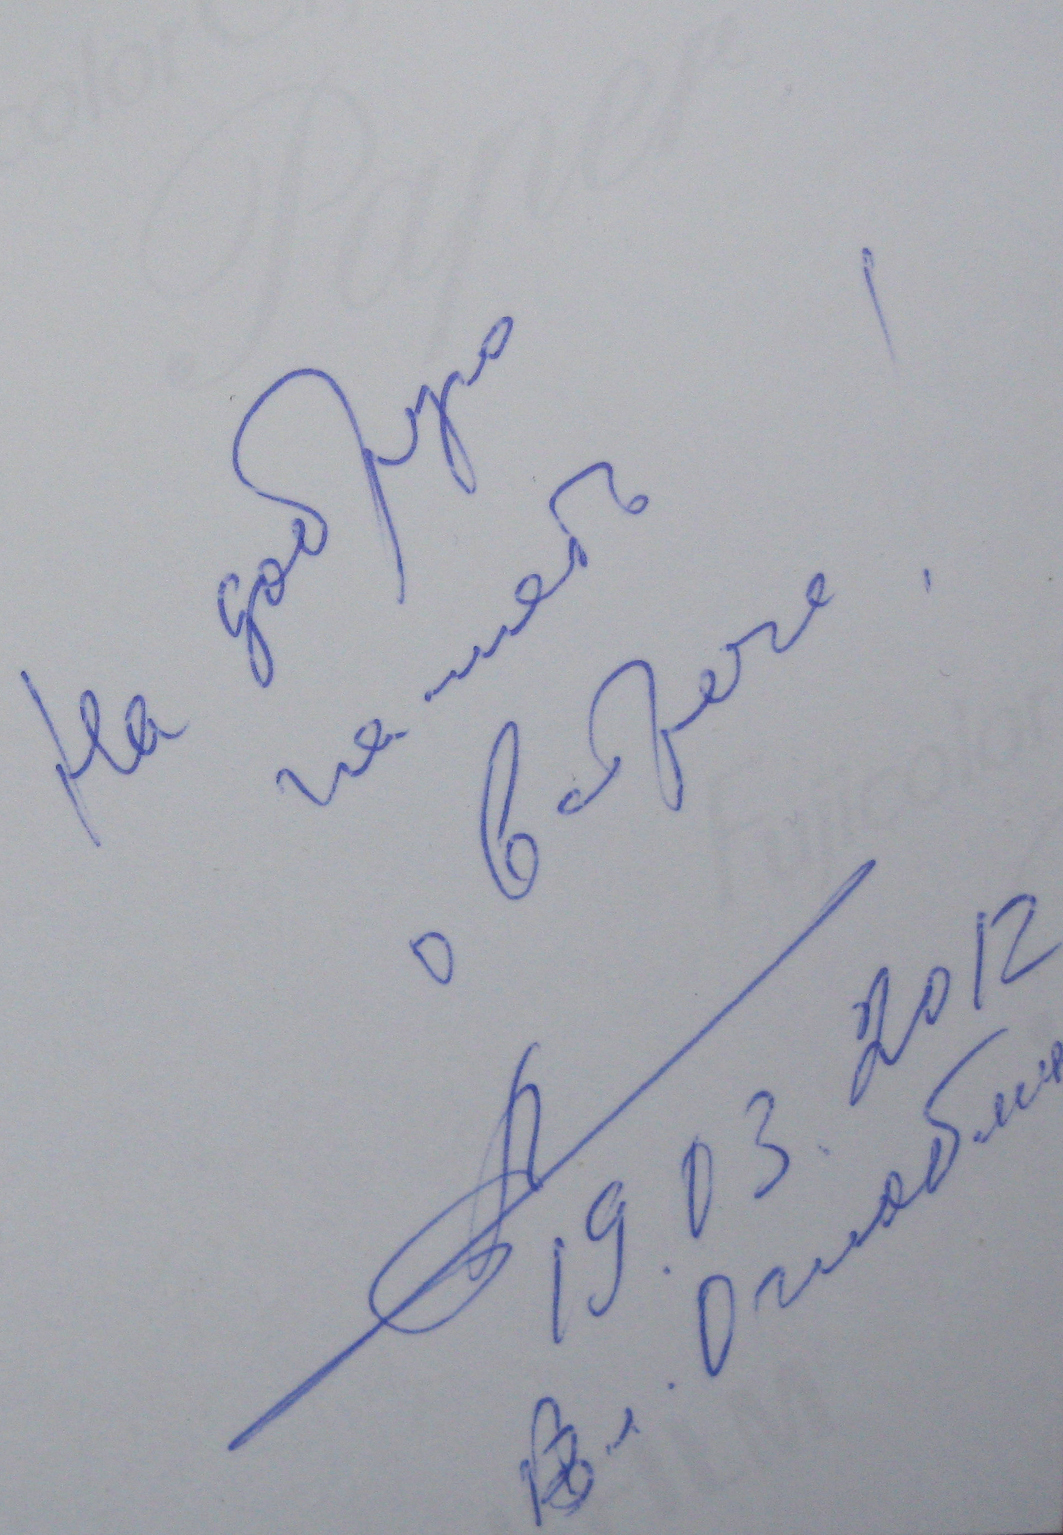 Color
Paper
На добрую
память
о встрече!
Fujicolor
19.03.2012
Вл.